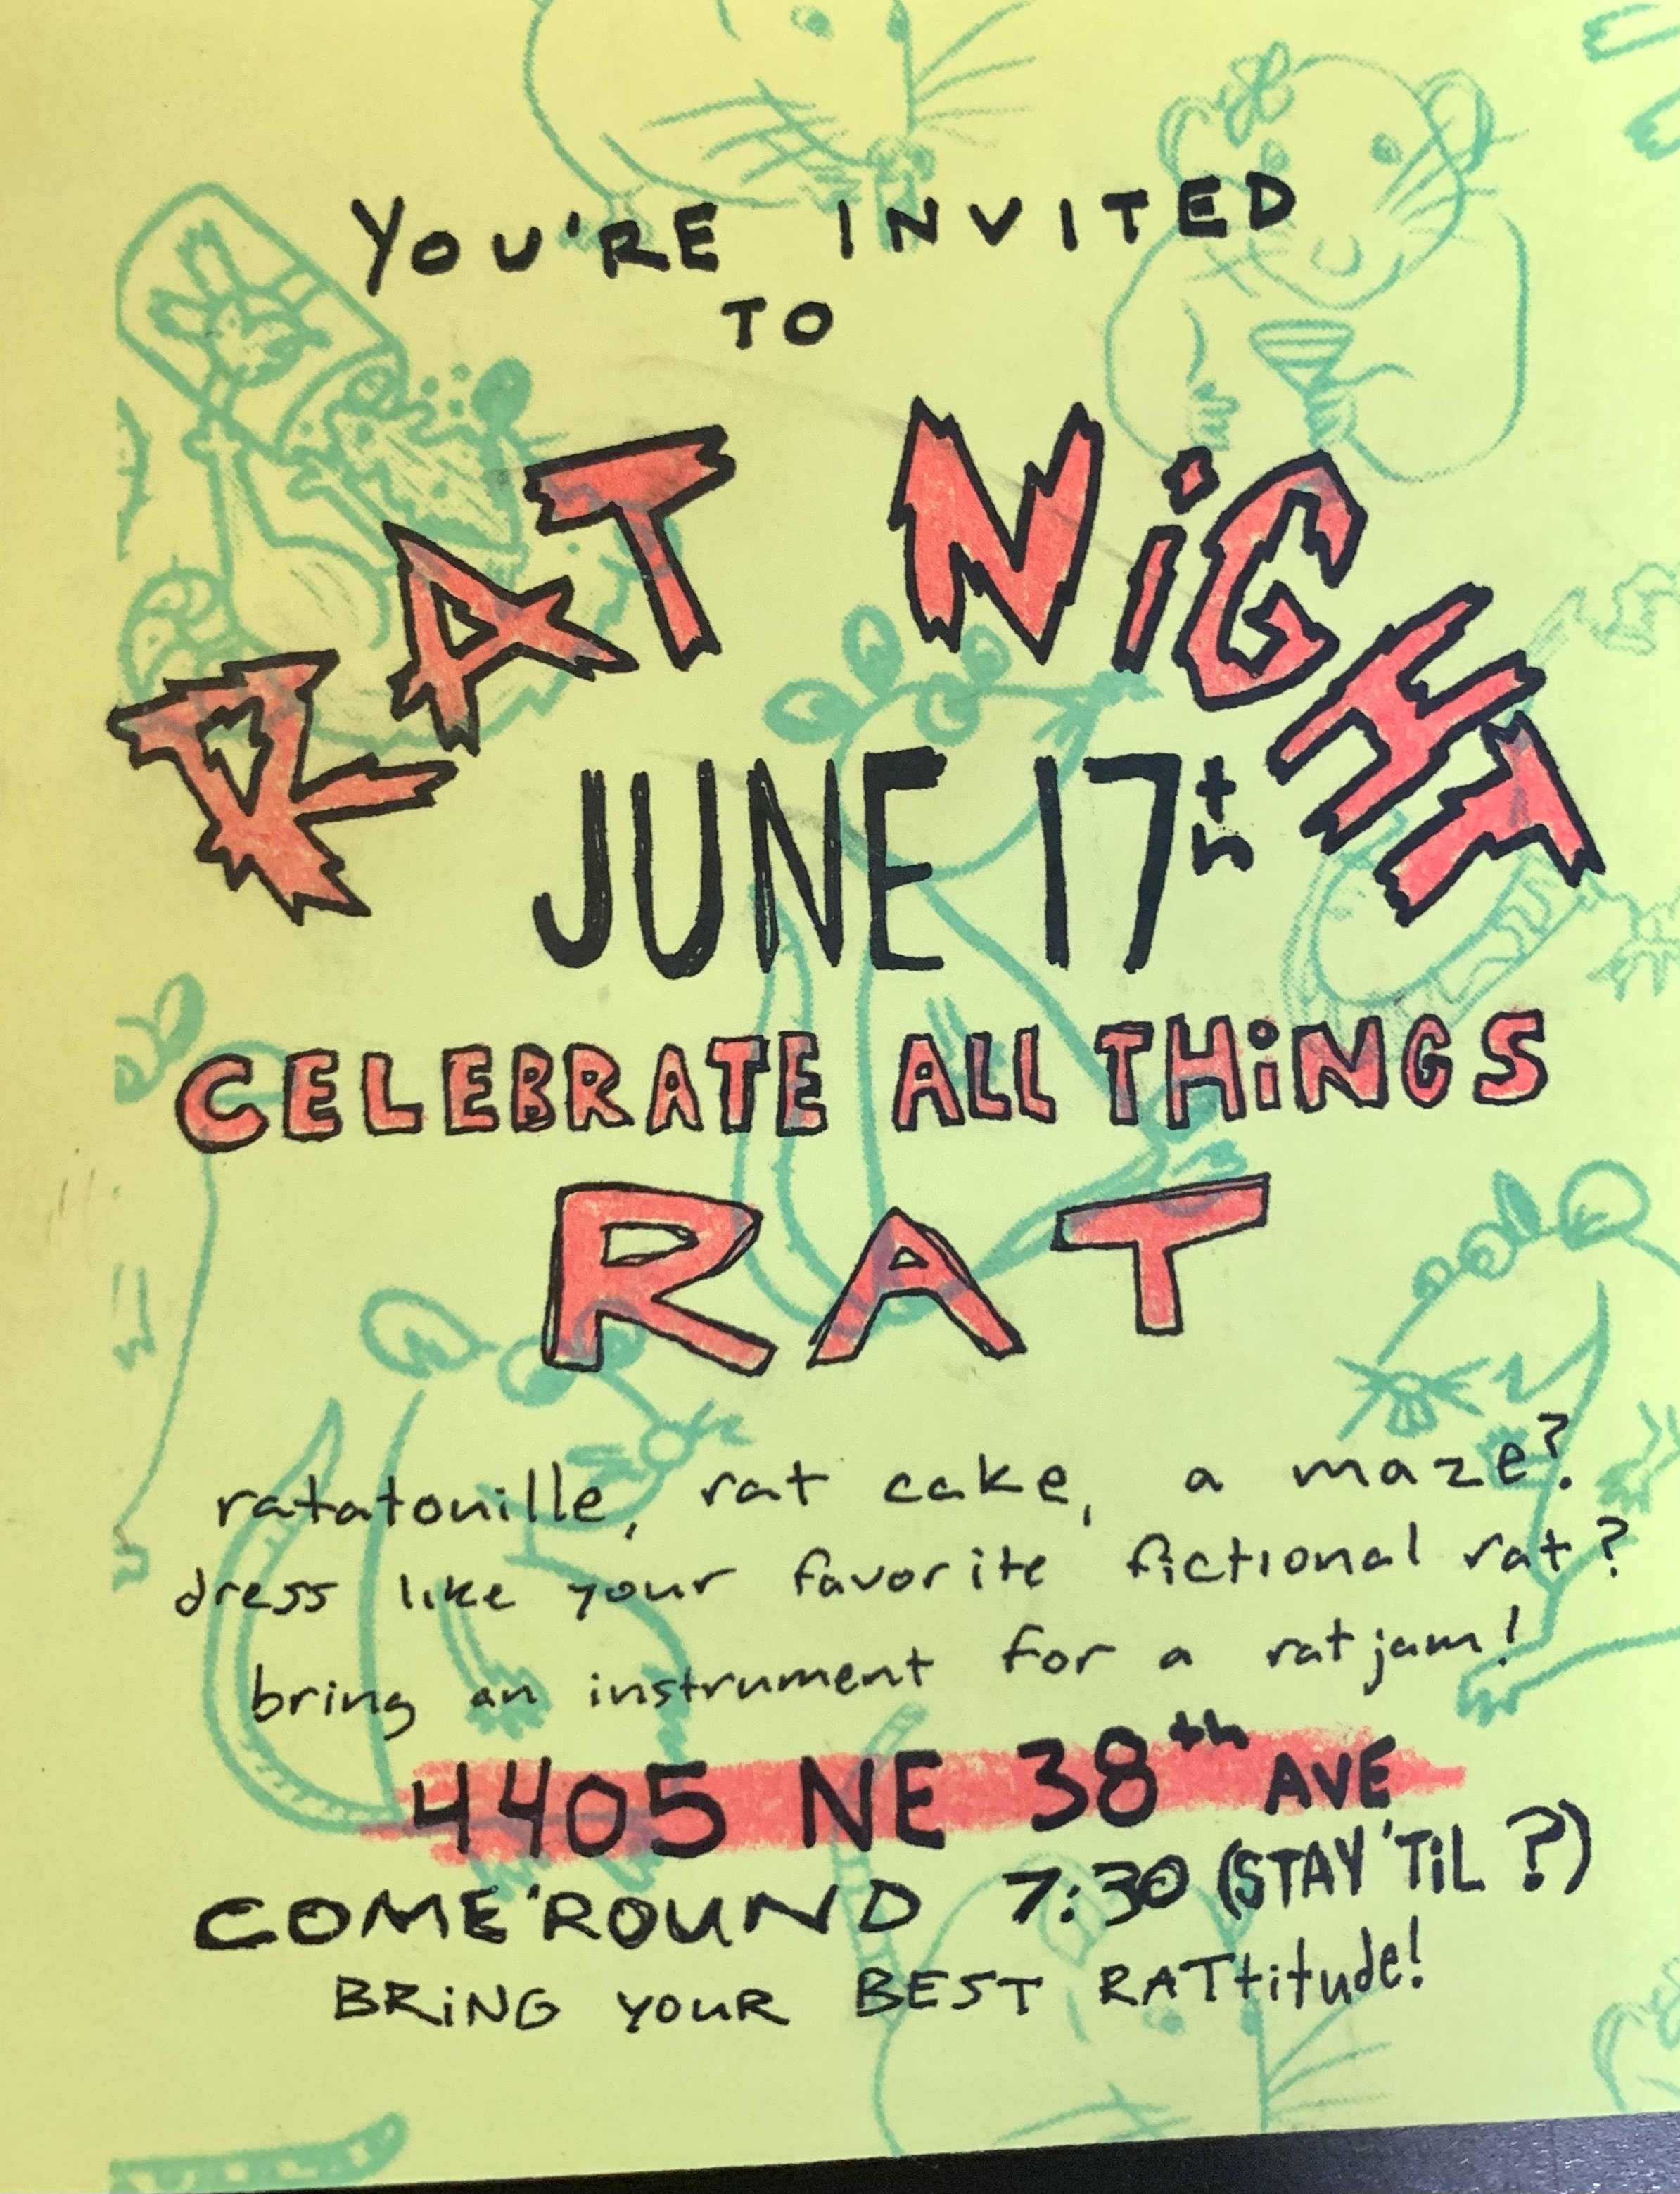 YOU'RE INVITED
TO
RAT NiGHT
JUNE 17th
CELEBRATE ALL THiNGS
RAT
ratatouille, rat cake, a maze?
dress like your favorite fictional rat?
bring an instrument for a rat jam!
4405 NE 38th AVE
COME 'ROUND 7:30 (STAY 'TiL ?)
BRiNG YOUR BEST RATtitude!